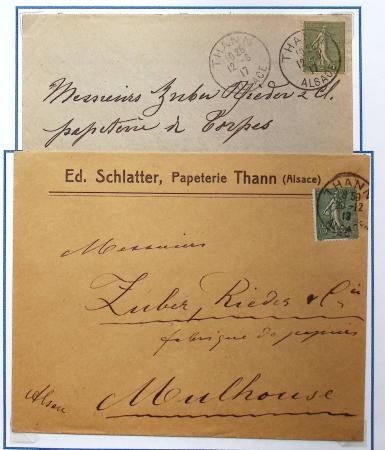 THANN
10 25
12 -5
17
ALSACE
THANN
12
17
ALSACE
Messieurs Zuber Rieder & Cie.
papeterie de Torpes
Ed. Schlatter, Papeterie Thann (Alsace)
THANN
50
-12
Messieurs
Zuber, Rieder & Cie
fabrique de papiers
Alsace
Mulhouse